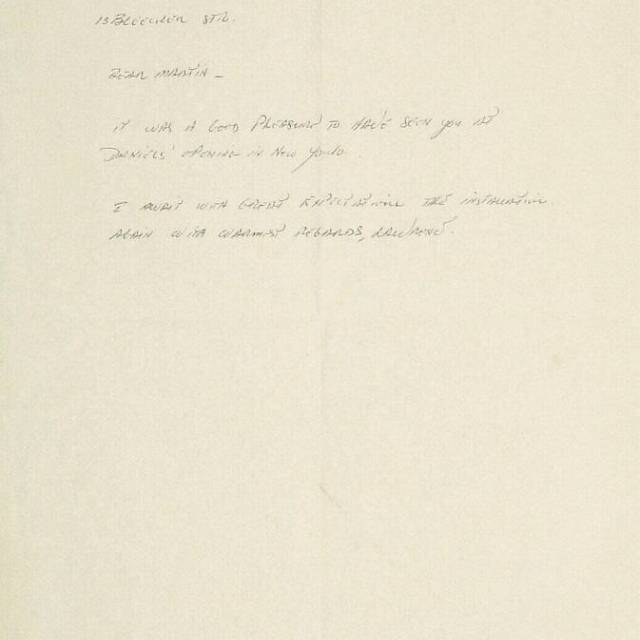 13 BLEECKER STR.
DEAR MARTIN -
IT WAS A GOOD PLEASURE TO HAVE SEEN YOU AT
DANIELS' OPENING IN NEW YORK.
I AWAIT WITH GREAT EXPECTATION THE INSTALLATION.
AGAIN WITH WARMEST REGARDS, LAWRENCE.